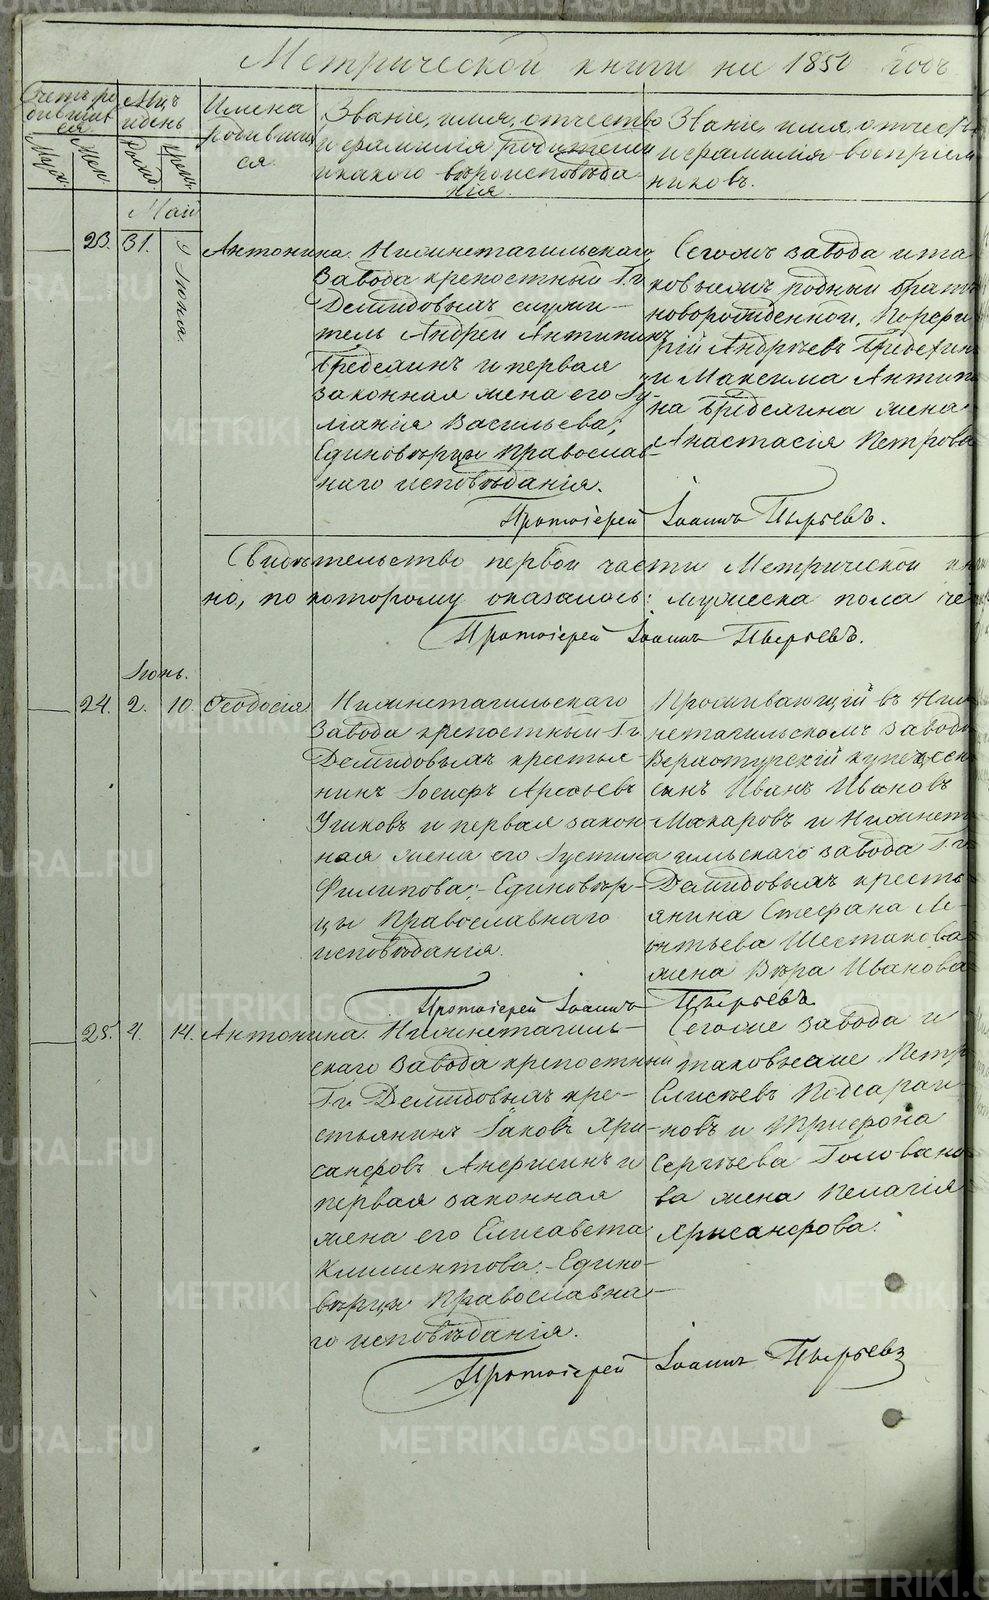 Метрической книги на 1850 годъ
Счетъ родившихся
Муж.
Жен.
Мѣц. и день
Рожд.
Крещ.
Имена родившихся.
Званіе, имя, отчество и фамилія родителей и какого вѣроисповѣданія.
Званіе, имя, отчество и фамилія воспріемниковъ.
Май
23. 31. 5 Іюня. Антонина.
Нижнетагильскаго
завода крепостный Гг.
Демидовыхъ служи-
тель Андрей Антипинъ
Бределинъ и первая
законная жена его Гу-
Васильева,
Единовѣрцы Православ-
наго исповѣданія.
Сегожъ завода и та-
ковыхъ родный братъ
новорожденной, Порфи-
рій Андрѣевъ Бределинъ
и Максима Антипи-
на Бределина жена
Анастасія Петрова
Протоіерей Іоаннъ Пырьевъ.
Свидѣтельство первой части Метрической
но, по которому оказалось: мужеска пола
Протоіерей Іоаннъ Пырьевъ.
Іюнь.
24. 2. 10. Ѳеодосія
Нижнетагильскаго
завода крепостный Гг.
Демидовыхъ крестья-
нинъ Іосифъ Арсеьевъ
Угиковъ и первая закон-
ная жена его Густина
Филипова, Единовѣр-
цы Православнаго
исповѣданія.
Проживающій въ Ниж-
нетагильскомъ заводѣ
Верхотурскій купеческій
сынъ Иванъ Ивановъ
Макаровъ и Нижнета-
гильскаго завода Гг.
Демидовыхъ кресть-
янина Стефана Ле-
онтьева Шестакова
жена Вѣра Иванова
Протоіерей Іоаннъ Пырьевъ
25. 4. 14. Антонина.
Нижнетагиль-
скаго завода крепостный
Гг. Демидовыхъ кре-
стьянинъ Іаковъ Хри-
санфовъ и
первая законная
жена его Елисавета
Климентова. Едино-
вѣрцы Православна-
го исповѣданія.
Сегоже завода и
таковыеже Петръ
Елисѣевъ Подсарай-
новъ и Трифона
Сергѣева Голованова
жена Пелагія
Хрисанфова.
Протоіерей Іоаннъ Пырьевъ
METRIKI.GASO-URAL.RU